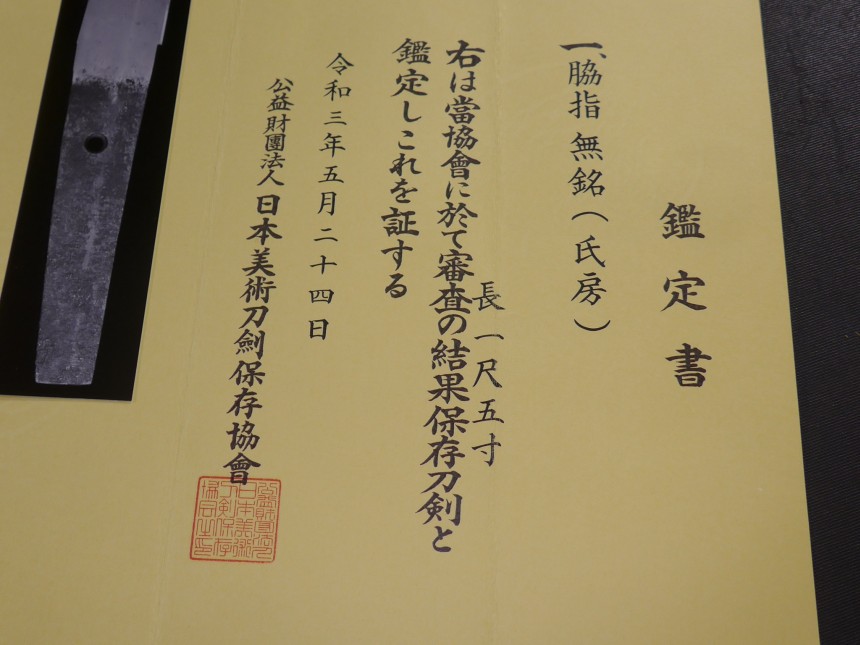 鑑定書
一、脇指 無銘(氏房)
長一尺五寸
右は當協會に於て審査の結果保存刀剣と
鑑定しこれを証する
令和三年五月二十四日
公益財團法人 日本美術刀劍保存協會